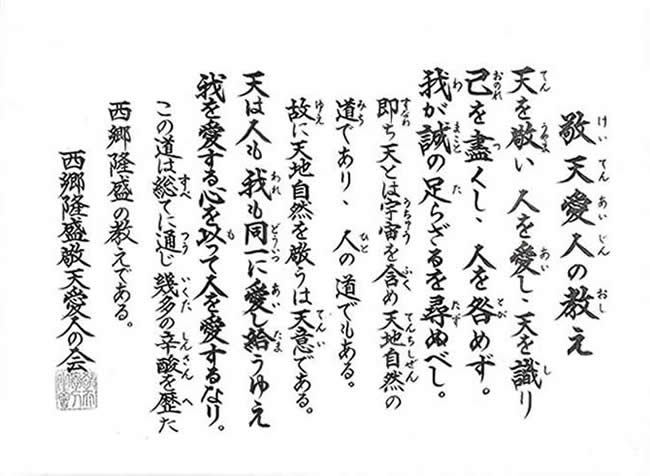 敬天愛人の教え
天を敬い 人を愛し、天を識り
己を盡くし、人を咎めず。
我が誠の足らざるを尋ぬべし。
即ち天とは宇宙を含め天地自然の
道であり、人の道でもある。
故に天地自然を敬うは天意である。
天は人も我も同一に愛し給うゆえ
我を愛する心を以って人を愛するなり。
この道は総てに通じ幾多の辛酸を歴た
西郷隆盛の教えである。
西郷隆盛敬天愛人の会